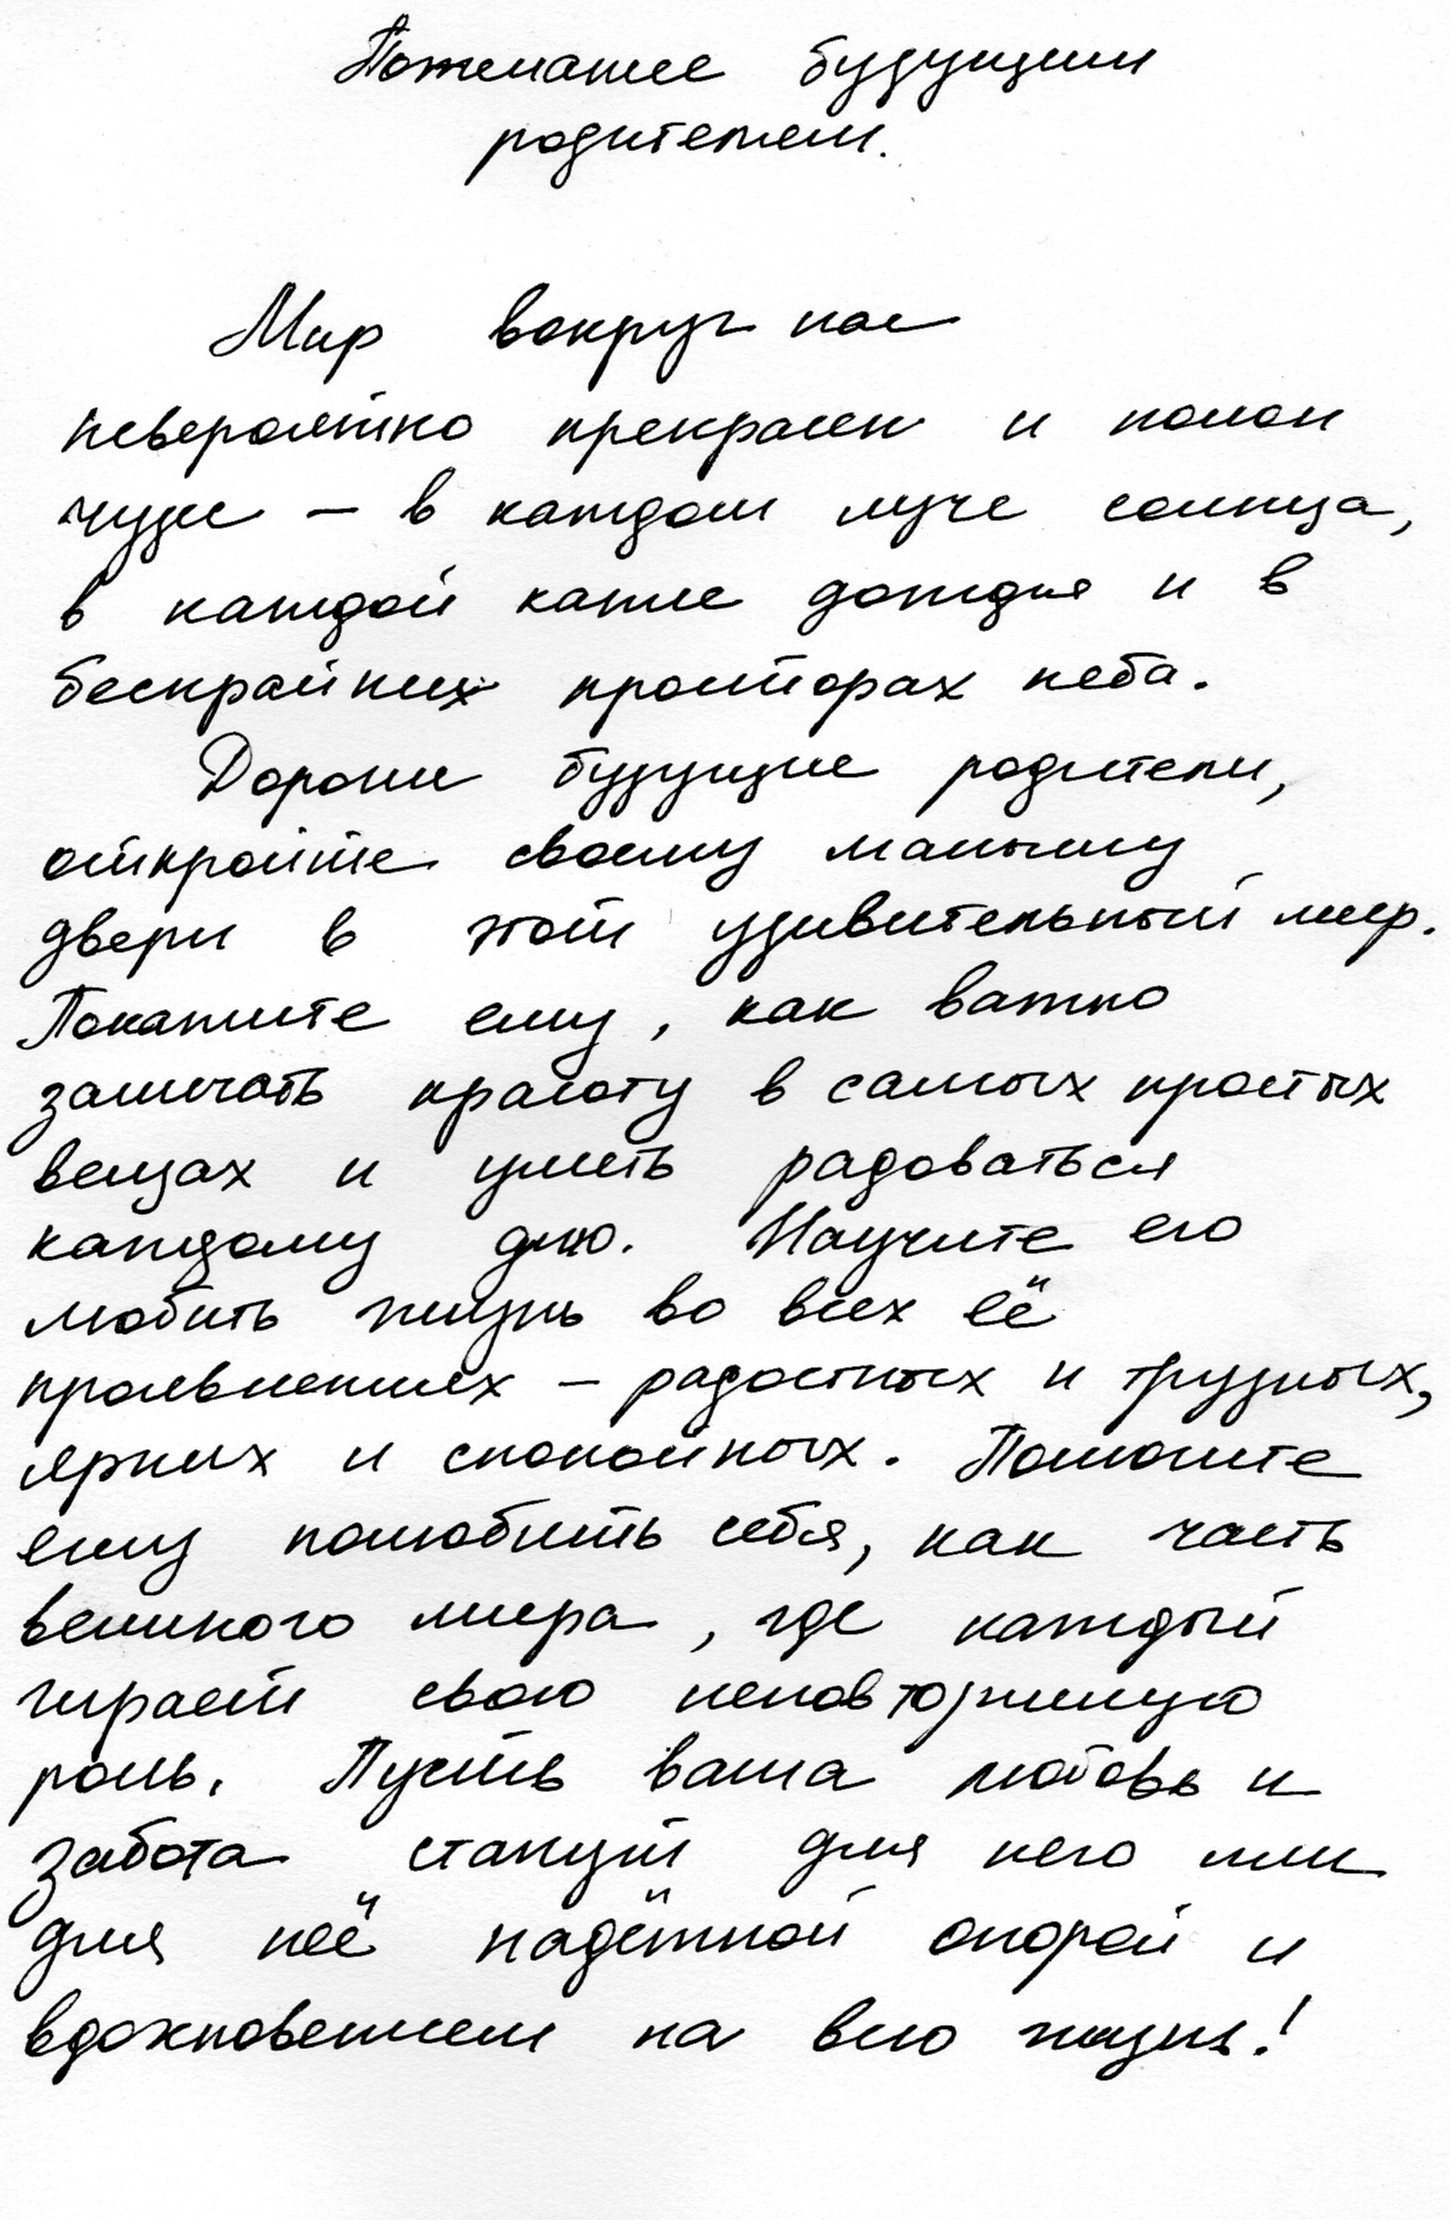 Пожелание будущим
родителям.
Мир вокруг нас
невероятно прекрасен и полон
чудес – в каждом луче солнца,
в каждой капле дождя и в
бескрайних просторах неба.
Дорогие будущие родители,
откройте своему малышу
двери в этот удивительный мир.
Покажите ему, как важно
замечать красоту в самых простых
вещах и уметь радоваться
каждому дню. Научите его
любить жизнь во всех её
проявлениях – радостных и трудных,
ярких и спокойных. Помогите
ему полюбить себя, как часть
великого мира, где каждый
играет свою неповторимую
роль. Пусть ваша любовь и
забота станут для него или
для неё надёжной опорой и
вдохновением на всю жизнь!